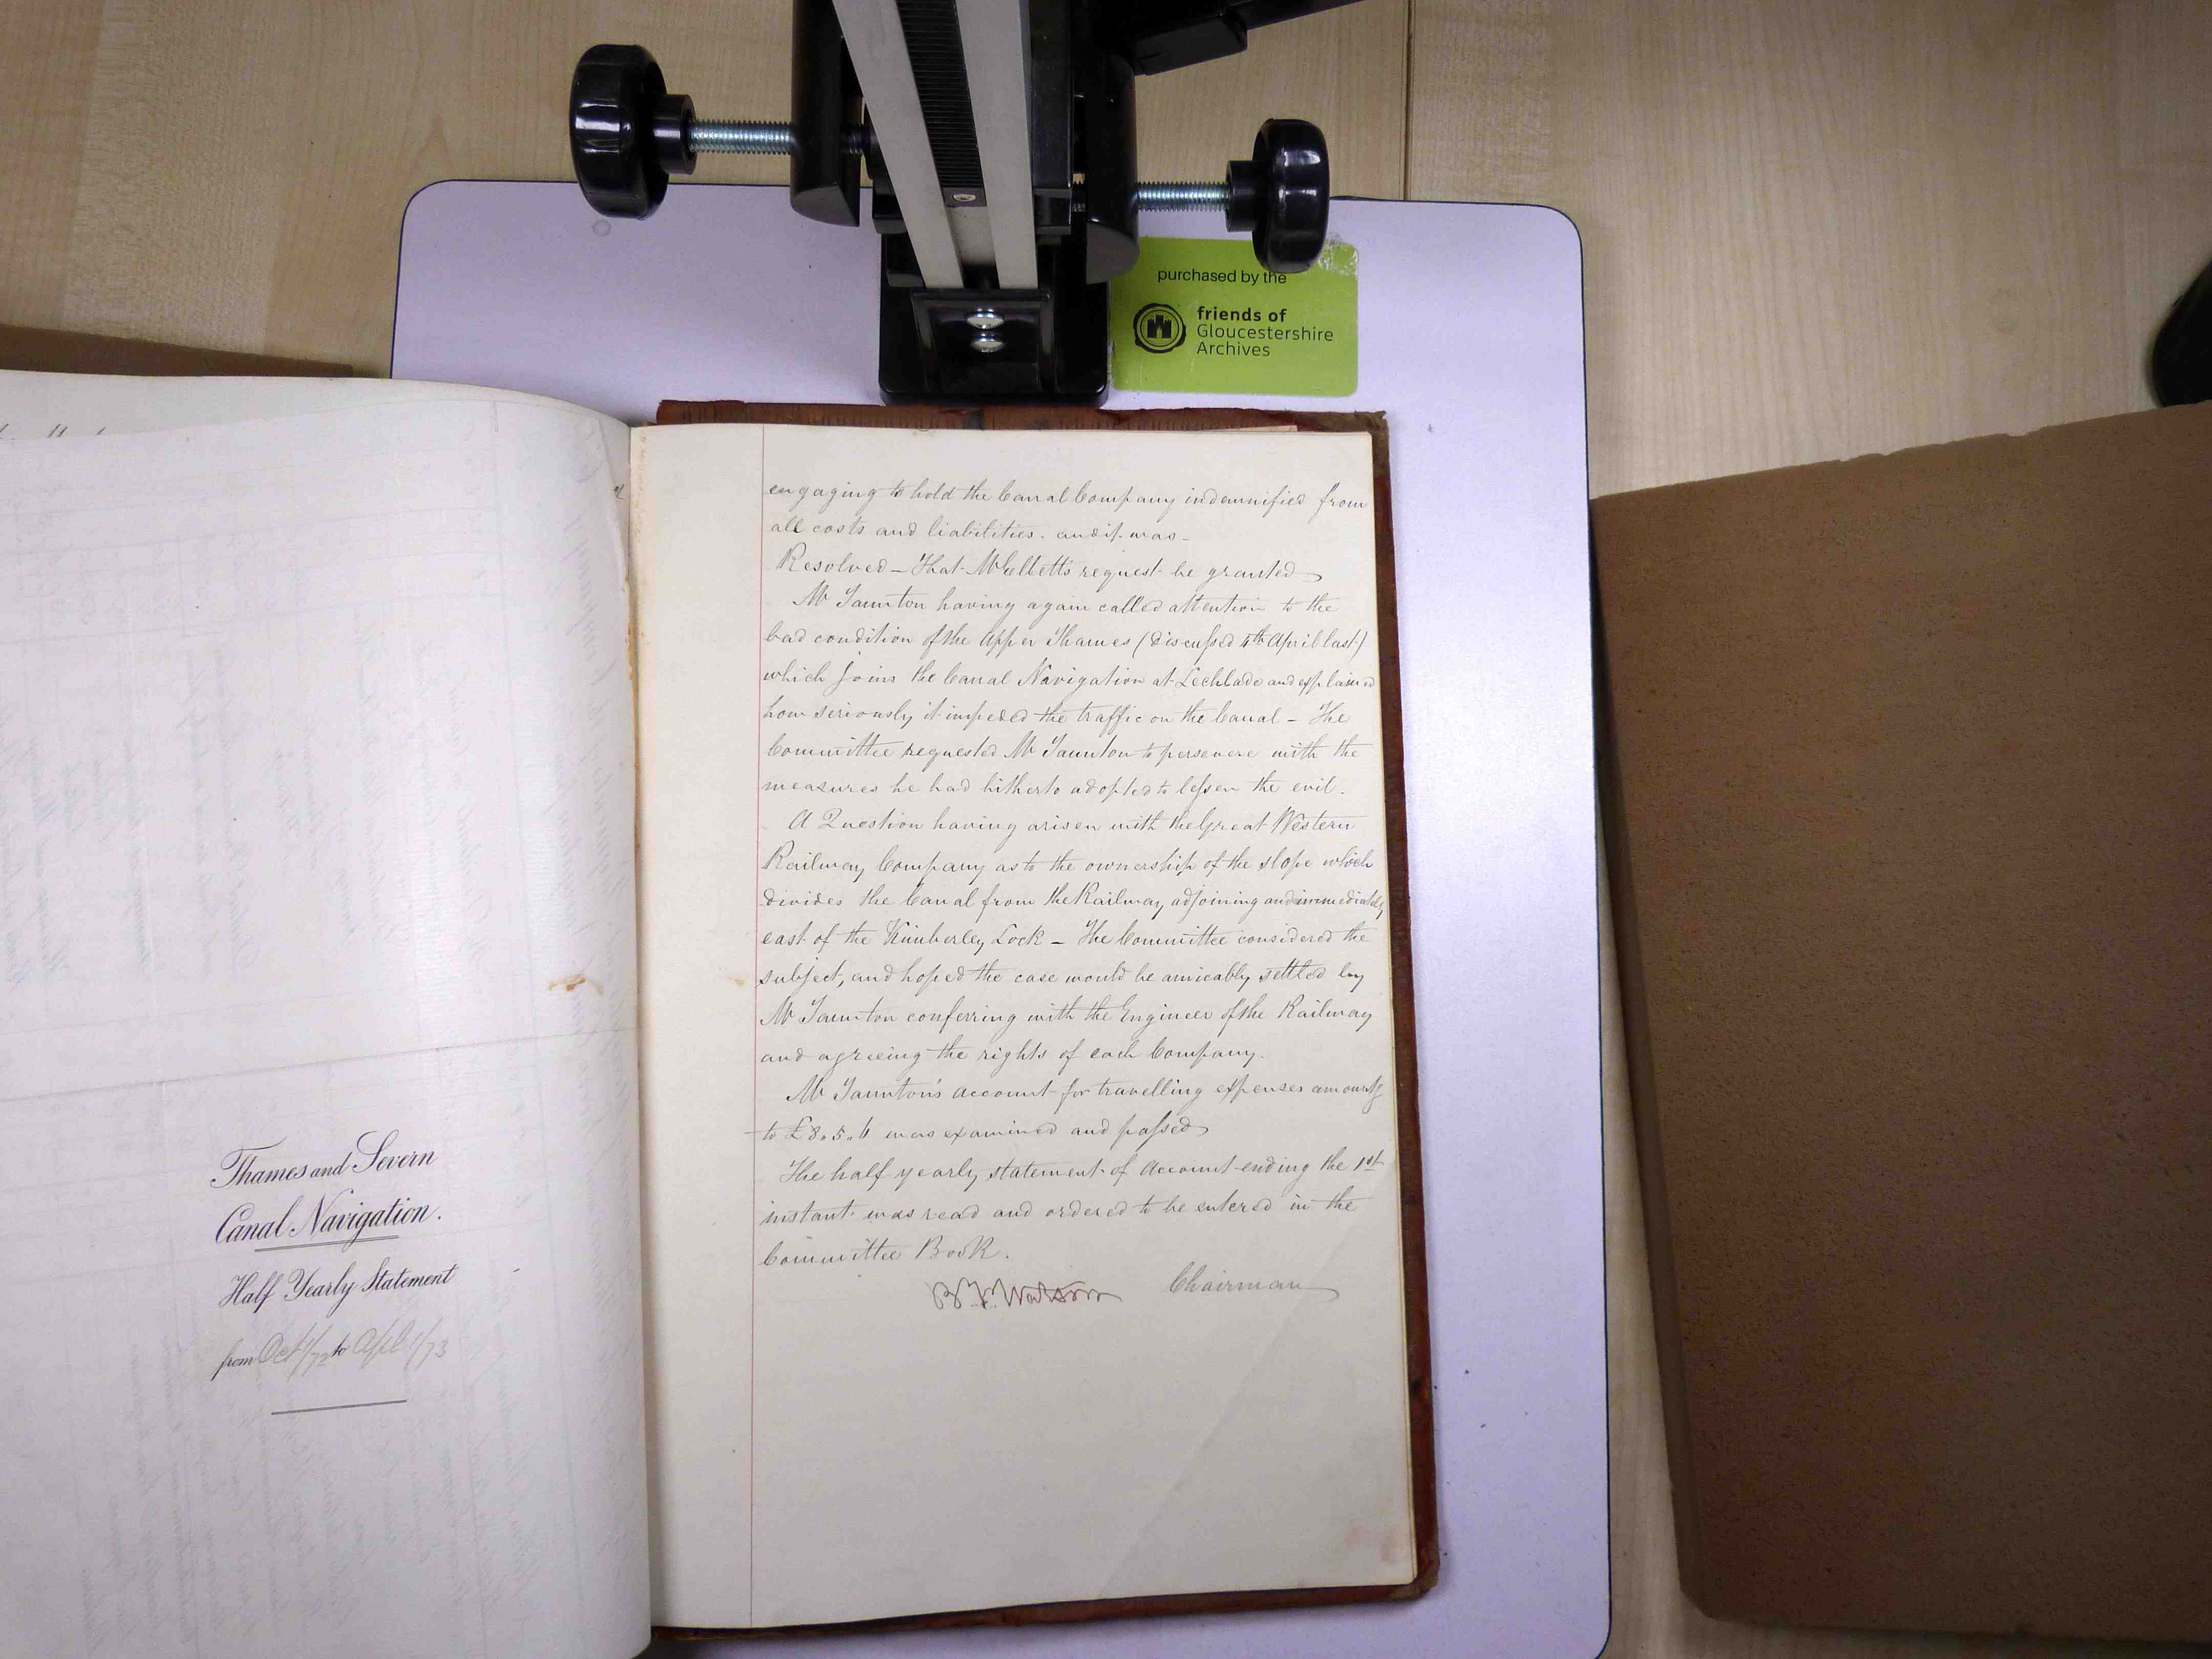 purchased by the
friends of
Gloucestershire
Archives
Thames and Severn
Canal Navigation.
Half Yearly Statement
from Oct 1/72 to Apl 1/73
engaging to hold the Canal Company indemnified from
all costs and liabilities. and it was -
Resolved - That Mr request be granted
Mr Taunton having again called attention to the
bad condition of the Upper Thames (discussed 4th April last)
which joins the Canal Navigation at Lechlade and explained
how seriously it impeded the traffic on the Canal - The
Committee requested Mr Taunton to persevere with the
measures he had hitherto adopted to lessen the evil.
A Question having arisen with the Great Western
Railway Company as to the ownership of the slope which
divides the Canal from the Railway adjoining and immediately
east of the Kimberley Lock - The Committee considered the
subject, and hoped the case would be amicably settled by
Mr Taunton conferring with the Engineer of the Railway
and agreeing the rights of each Company.
Mr Taunton's account for travelling expenses amountg
to £8.5.6 was examined and passed
The half yearly statement of Account ending the 1st
instant was read and ordered to be entered in the
Committee Book.
Watson Chairman